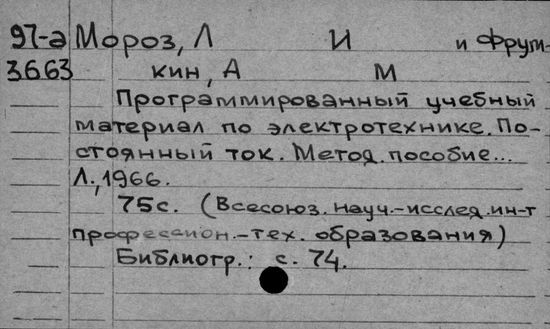 97-а Мороз, Л И и Фрум-
3663 кин, А М
Программированный учебный
материал по электротехнике. По-
стоянный ток. Метод. пособие...
Л., 1966.
75с. (Всесоюз. науч.-исслед. ин-т
професссион.-тех. образования)
Библиогр.: с. 74.